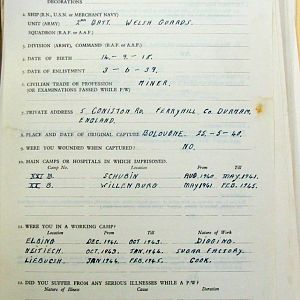 DECORATIONS
4. SHIP (R.N., U.S.N. or MERCHANT NAVY)
UNIT (ARMY) 2ND BATT. WELSH GUARDS.
SQUADRON (R.A.F. or A.A.F.)
5. DIVISION (ARMY), COMMAND (R.A.F. or A.A.F.)
DATE OF BIRTH 14-9-18.
DATE OF ENLISTMENT 3-6-39.
CIVILIAN TRADE OR PROFESSION MINER.
(OR EXAMINATIONS PASSED WHILE P/W)
7. PRIVATE ADDRESS 5 CONISTON RD. FERRYHILL CO. DURHAM,
ENGLAND.
PLACE AND DATE OF ORIGINAL CAPTURE BOLOUGNE. 25-5-40.
WERE YOU WOUNDED WHEN CAPTURED? NO.
10. MAIN CAMPS OR HOSPITALS IN WHICH IMPRISONED.
Camp No. Location From Till
XXI B. SCHUBIN AUG. 1940. MAY. 1941.
XX B. WILLENBURG MAY 1941 FEB. 1945.
WERE YOU IN A WORKING CAMP?
Location From Till Nature of Work
ELBING DEC. 1941 OCT. 1943. DIGGING.
OCT. 1943. JAN. 1944. SUGAR FACTORY.
JAN. 1944 FEB. 1945. COOK.
DID YOU SUFFER FROM ANY SERIOUS ILLNESSES WHILE A P/W?
Nature of Illness Cause Duration